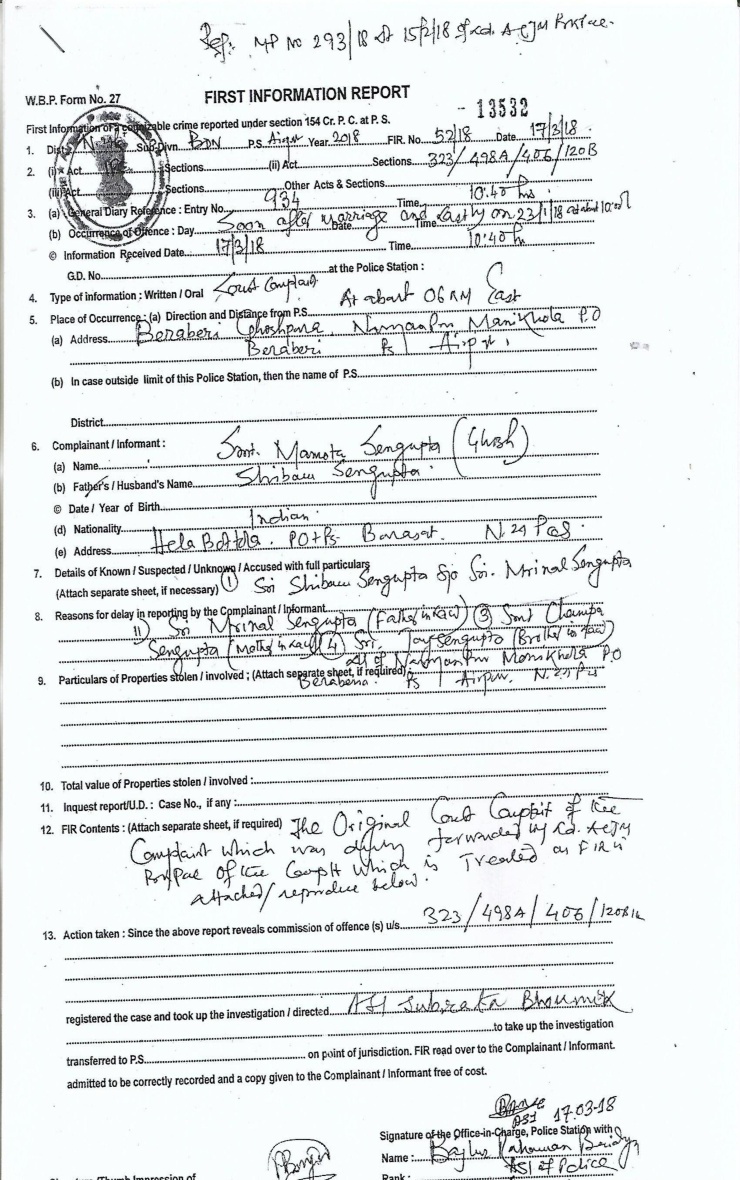 Ref: MP No 293/18 dt 15/2/18 of Ld. ACJM
W.B.P. Form No. 27
FIRST INFORMATION REPORT
- 13532
First Information of a cognizable crime reported under section 154 Cr. P. C. at P. S.
1. Dist. Sub-Divn. BDN P.S. Airport Year 2018 FIR. No. 52/18 Date 17/3/18
2. (i)* Act Sections (ii) Act Sections 323/498A/406/120B
(iii) Act Sections Other Acts & Sections
3. (a) General Diary Reference : Entry No. 934 Time 10.40 hrs
(b) Occurrence of Offence : Day Soon after marriage and lastly on 23/1/18 at about Date Time
© Information Received Date 17/3/18 Time 10:40 h
G.D. No. at the Police Station :
4. Type of information : Written / Oral Court Complaint
At about 06 KM East
5. Place of Occurrence : (a) Direction and Distance from P.S.
(a) Address Beraberi Ghoshpara, Manikhola P.O
Beraberi Ps Airport
(b) In case outside limit of this Police Station, then the name of P.S.
District
6. Complainant / Informant :
(a) Name Smt. Mamota Sengupta (Ghosh)
(b) Father's / Husband's Name Shibam Sengupta
© Date / Year of Birth
(d) Nationality Indian
(e) Address Hela Bottola. PO+Ps- Barasat. N. 24 Pgs.
7. Details of Known / Suspected / Unknown / Accused with full particulars
(Attach separate sheet, if necessary) (1) Sri Shibam Sengupta S/o Sri. Mrinal Sengupta
8. Reasons for delay in reporting by the Complainant / Informant
11) Sri Mrinal Sengupta (Father in Law) (3) Smt Champa
Sengupta (Mother in Law) (4) Sri. Sengupta (Brother in Law)
All of Manikhola P.O
9. Particulars of Properties stolen / involved ; (Attach separate sheet, if required)
Ps Airport. N. 24 Pgs
10. Total value of Properties stolen / involved :
11. Inquest report/U.D. : Case No., if any :
12. FIR Contents : (Attach separate sheet, if required) The Original Court Complaint of the
Complaint which was duly forwarded by Ld. ACJM
of the Complt which is Treated as FIR is
attached/reproduce below.
13. Action taken : Since the above report reveals commission of offence (s) u/s. 323/498A/406/120B
registered the case and took up the investigation / directed ASI Subrata Bhoumick
to take up the investigation
transferred to P.S. on point of jurisdiction. FIR read over to the Complainant / Informant.
admitted to be correctly recorded and a copy given to the Complainant / Informant free of cost.
ASI 17.03.18
Signature of the Office-in-Charge, Police Station with
Name :
ASI of Police
Rank :